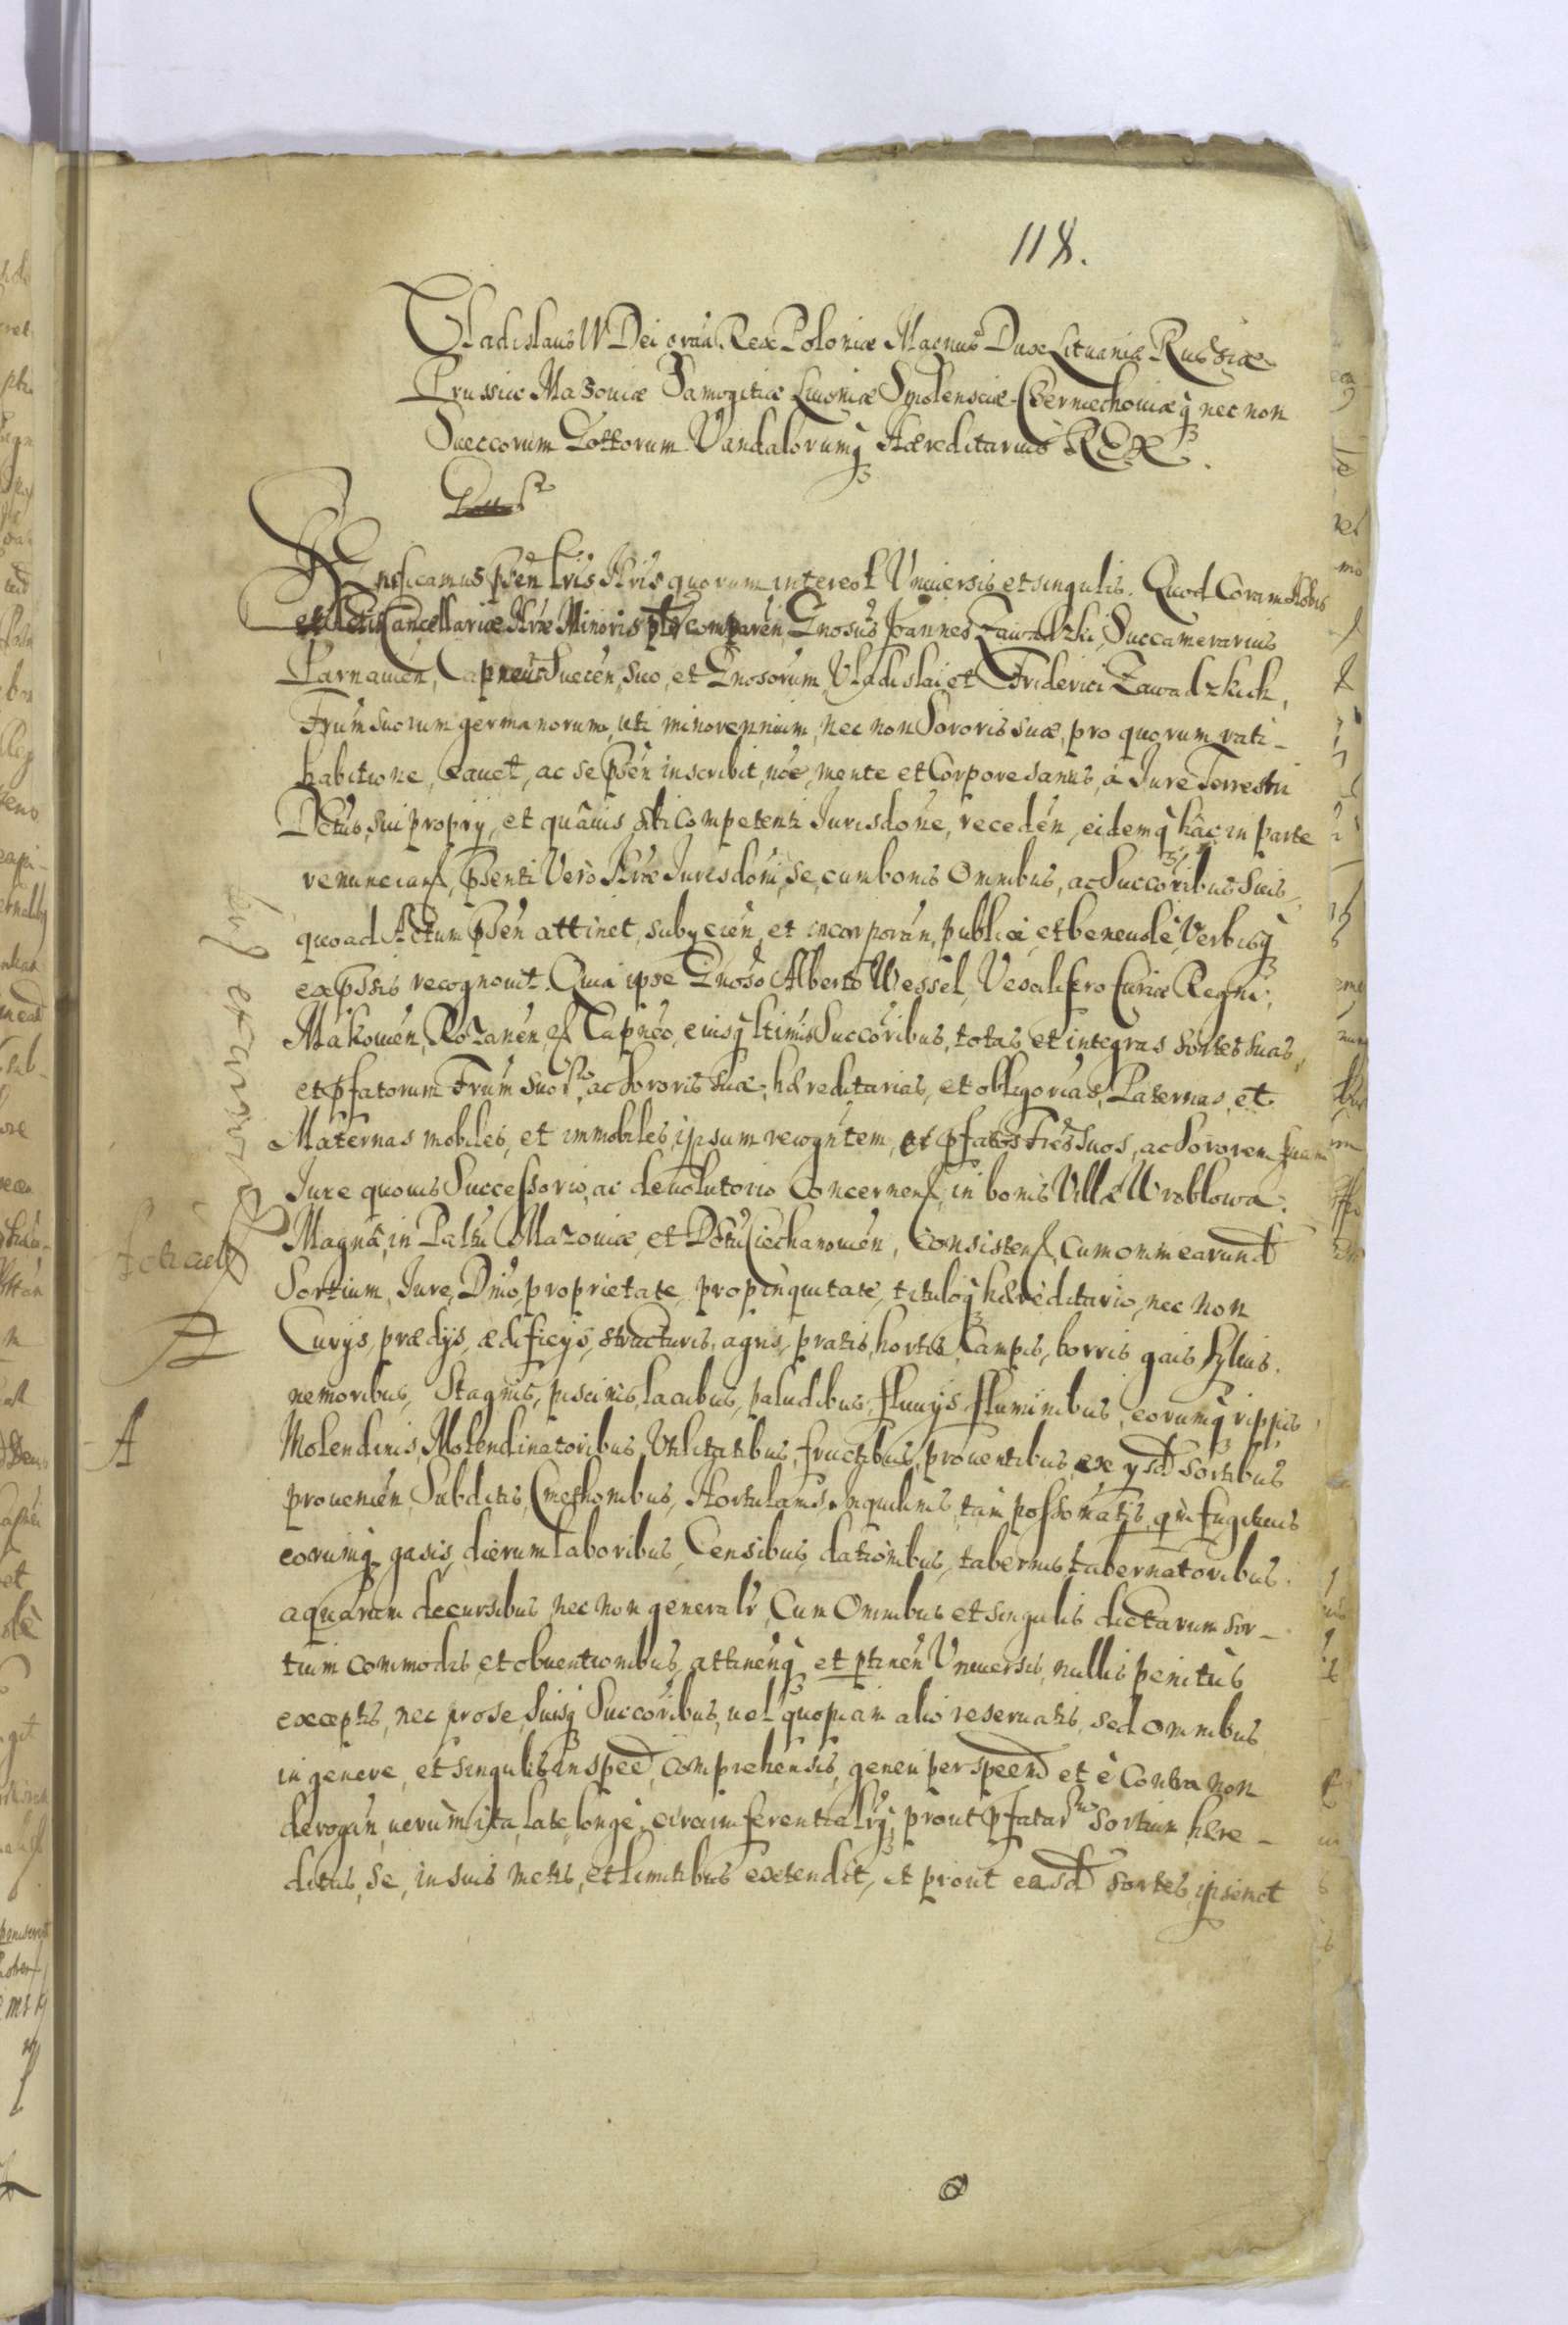 118.
Vladislaus IV Dei gratia Rex Poloniæ Magnus Dux Lituaniæ Russiæ
Prussiæ Mazoviæ Samogitiæ Livoniæ Smolensciæ Czerniechoviæq nec non
Sueccorum Gottorum Vandalorumq Hæreditarius REX.
Significamus pñen Lris Nris quorum interest Universis et singulis. Quod Coram Nobis
et Actis Cancellariæ Nræ Minoris pter comparen Gnosus Joannes Zawadzki, Succamerarius
Parnauien, Capneus Suecen, suo, et Gnosorum Vladislai et Friderici Zawadzkich,
Frum suorum germanorum, uti minorennium, nec non Sororis suæ, pro quorum rati-
habitione, cauet, ac se pñen inscribit, nõe, mente et Corpore sanus, a Jure Terrestri
Dctus, sui proprij, et quamis sibi competenti Jurisdone, receden, eidemq hâc in parte
renuncians, psenti Vero Nræ Jurisdoni, se, cum bonis Omnibus, ac Succoribus suis,
quoad Actum pñen attinet, subijcien, et incorporan, publice et beneuole Verbisq
expssis recognouit. Quia ipse Gnoso Alberto Wessel, Vexilifero Curiæ Regni,
Makouien, Rozanen, et Capneo, eiusq ltimis Succoribus, totas et integras sortes suas,
et pfatorum Frum suor, ac Sororis suæ, hæreditarias, et obligorias, Paternas, et
Maternas mobiles, et immobiles, ipsum recogntem, et pfatos Fres suos, ac Sororem suam
Jure quouis Successorio, ac deuolutorio Concernens, in bonis Villæ Wroblowa
Magna, in Paltu Mazouiæ, et Dctu Ciechanouien, Consistens, cum omni earund
Sortium, Jure, Dnio, proprietate, propinquitate, tituloq hæreditario, nec non
Curijs, prædijs, ædificijs, structuris, agris, pratis, hortis, Campis, borris gais sylvis.
nemoribus, Stagnis, piscinis, lacubus, paludibus, fluuijs fluminibus, eorumq rippis,
A
Molendinis, Molendinatoribus, Utilitatibus, fructibus, prouentibus, ex ijsd sortibus
prouenien, Subditis, Cmethonibus, Hortulanis, Inquilinis, tam possonatis, qm fugitiuis
eorumq gasis, dierum laboribus, Censibus, dationibus, tabernis, tabernatoribus.
aquarum decursibus, nec non generalr, Cum Omnibus et singulis dictarum sor-
tium commodis et obuentionibus, attinenq et ptinen Uniuersis, nullis penitus
exceptis, nec pro se, suisq Succoribus, uel quopiam alio reseruatis, sed omnibus
in genere, et singulis in specie, comprehensis, generi per speem et e Contra non
derogan, uerum ita, late, longe, circumferentialrq, prout pfatar sortium, hære-
ditas, se, in suis metis, et limitibus extendit, et prout easd sortes, ipsemet